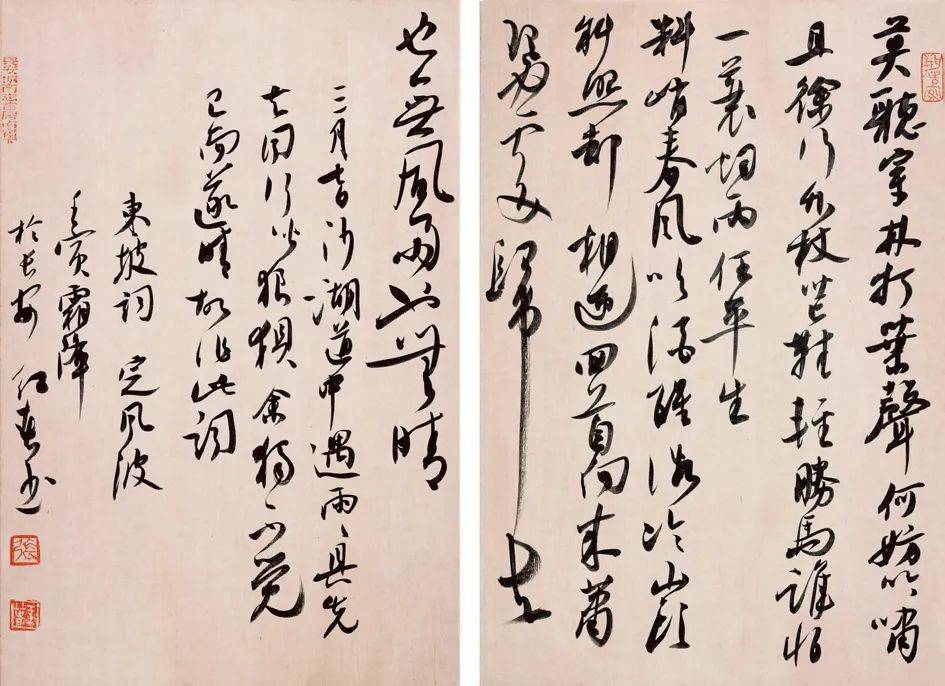 莫聽穿林打葉聲何妨吟嘯
且徐行竹杖芒鞋輕勝馬誰怕
一蓑烟雨任平生
料峭春風吹酒醒微冷山頭
斜照却相迎回首向來蕭
瑟處歸去
也無風雨也無晴
三月七日沙湖道中遇雨雨具先
去同行皆狼狽余獨不覺
已而遂晴故作此詞
東坡詞 定風波
壬寅霜降
於長安 紅春書
張